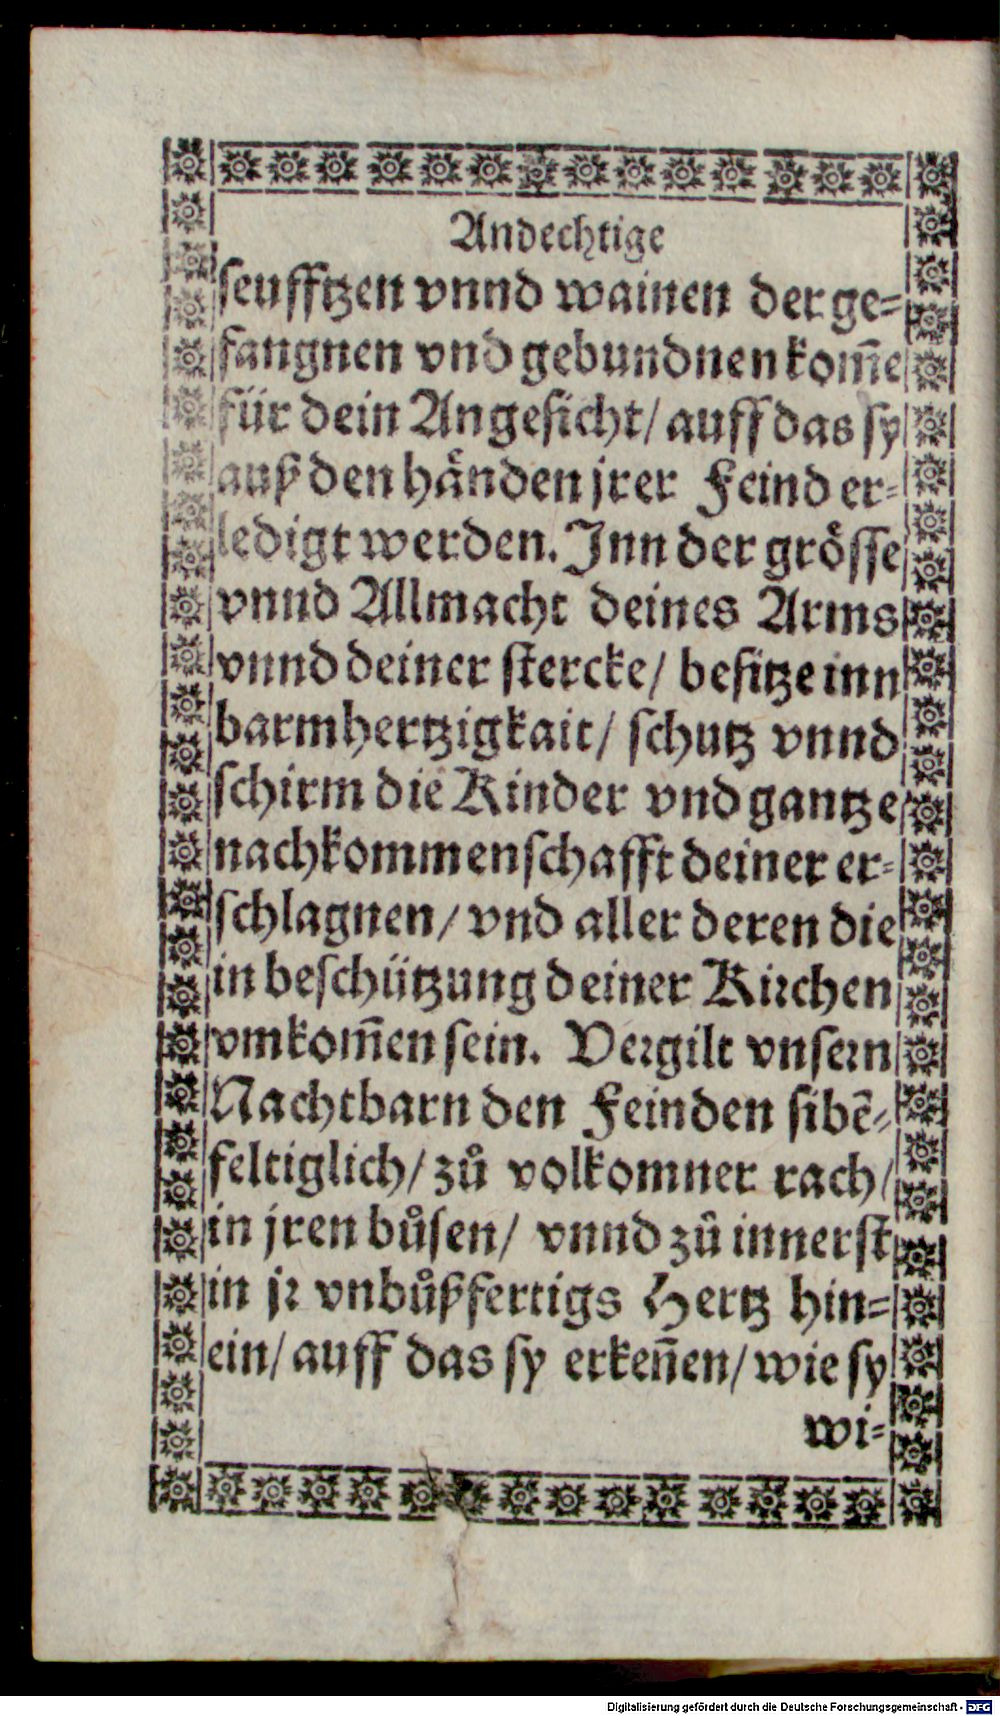 Andechtige
seufftzen vnnd wainen der ge-
fangnen vnd gebundnen kom̃e
für dein Angesicht/ auff das sy
auß den hånden jrer Feind er-
ledigt werden. Jnn der grösse
vnnd Allmacht deines Arms
vnnd deiner stercke/ besitze inn
barmhertzigkait/ schutz vnnd
schirm die Kinder vnd gantze
nachkommenschafft deiner er-
schlagnen/ vnd aller deren die
in beschützung deiner Kirchen
vmkom̃en sein. Vergilt vnsern
Nachtbarn den Feinden sibẽ-
feltiglich/ zů volkomner rach/
in jren bůsen/ vnnd zů innerst
in jr vnbůßfertigs Hertz hin-
ein/ auff das sy erkeñen/ wie sy
wi-
Digitalisierung gefördert durch die Deutsche Forschungsgemeinschaft - DFG